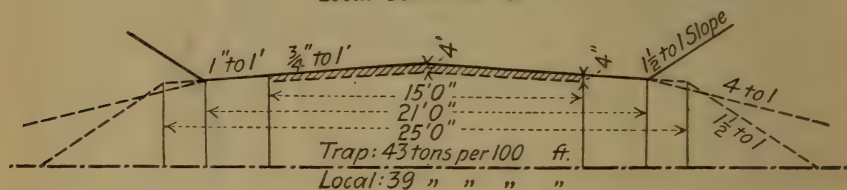 1" to 1'
3/4" to 1'
4"
4"
1 1/2 to 1 Slope
15'0"
21'0"
25'0"
4 to 1
1 1/2 to 1
Trap: 43 tons per 100 ft.
Local: 39 " " " "